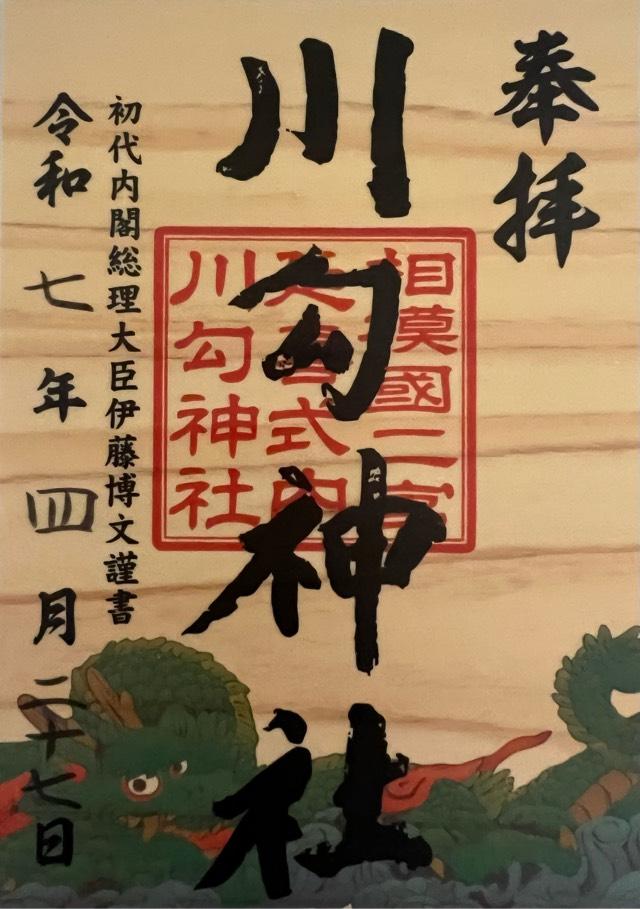 奉拝
相模國二宮
延喜式内
川勾神社
川勾神社
初代内閣総理大臣伊藤博文謹書
令和七年四月二十七日